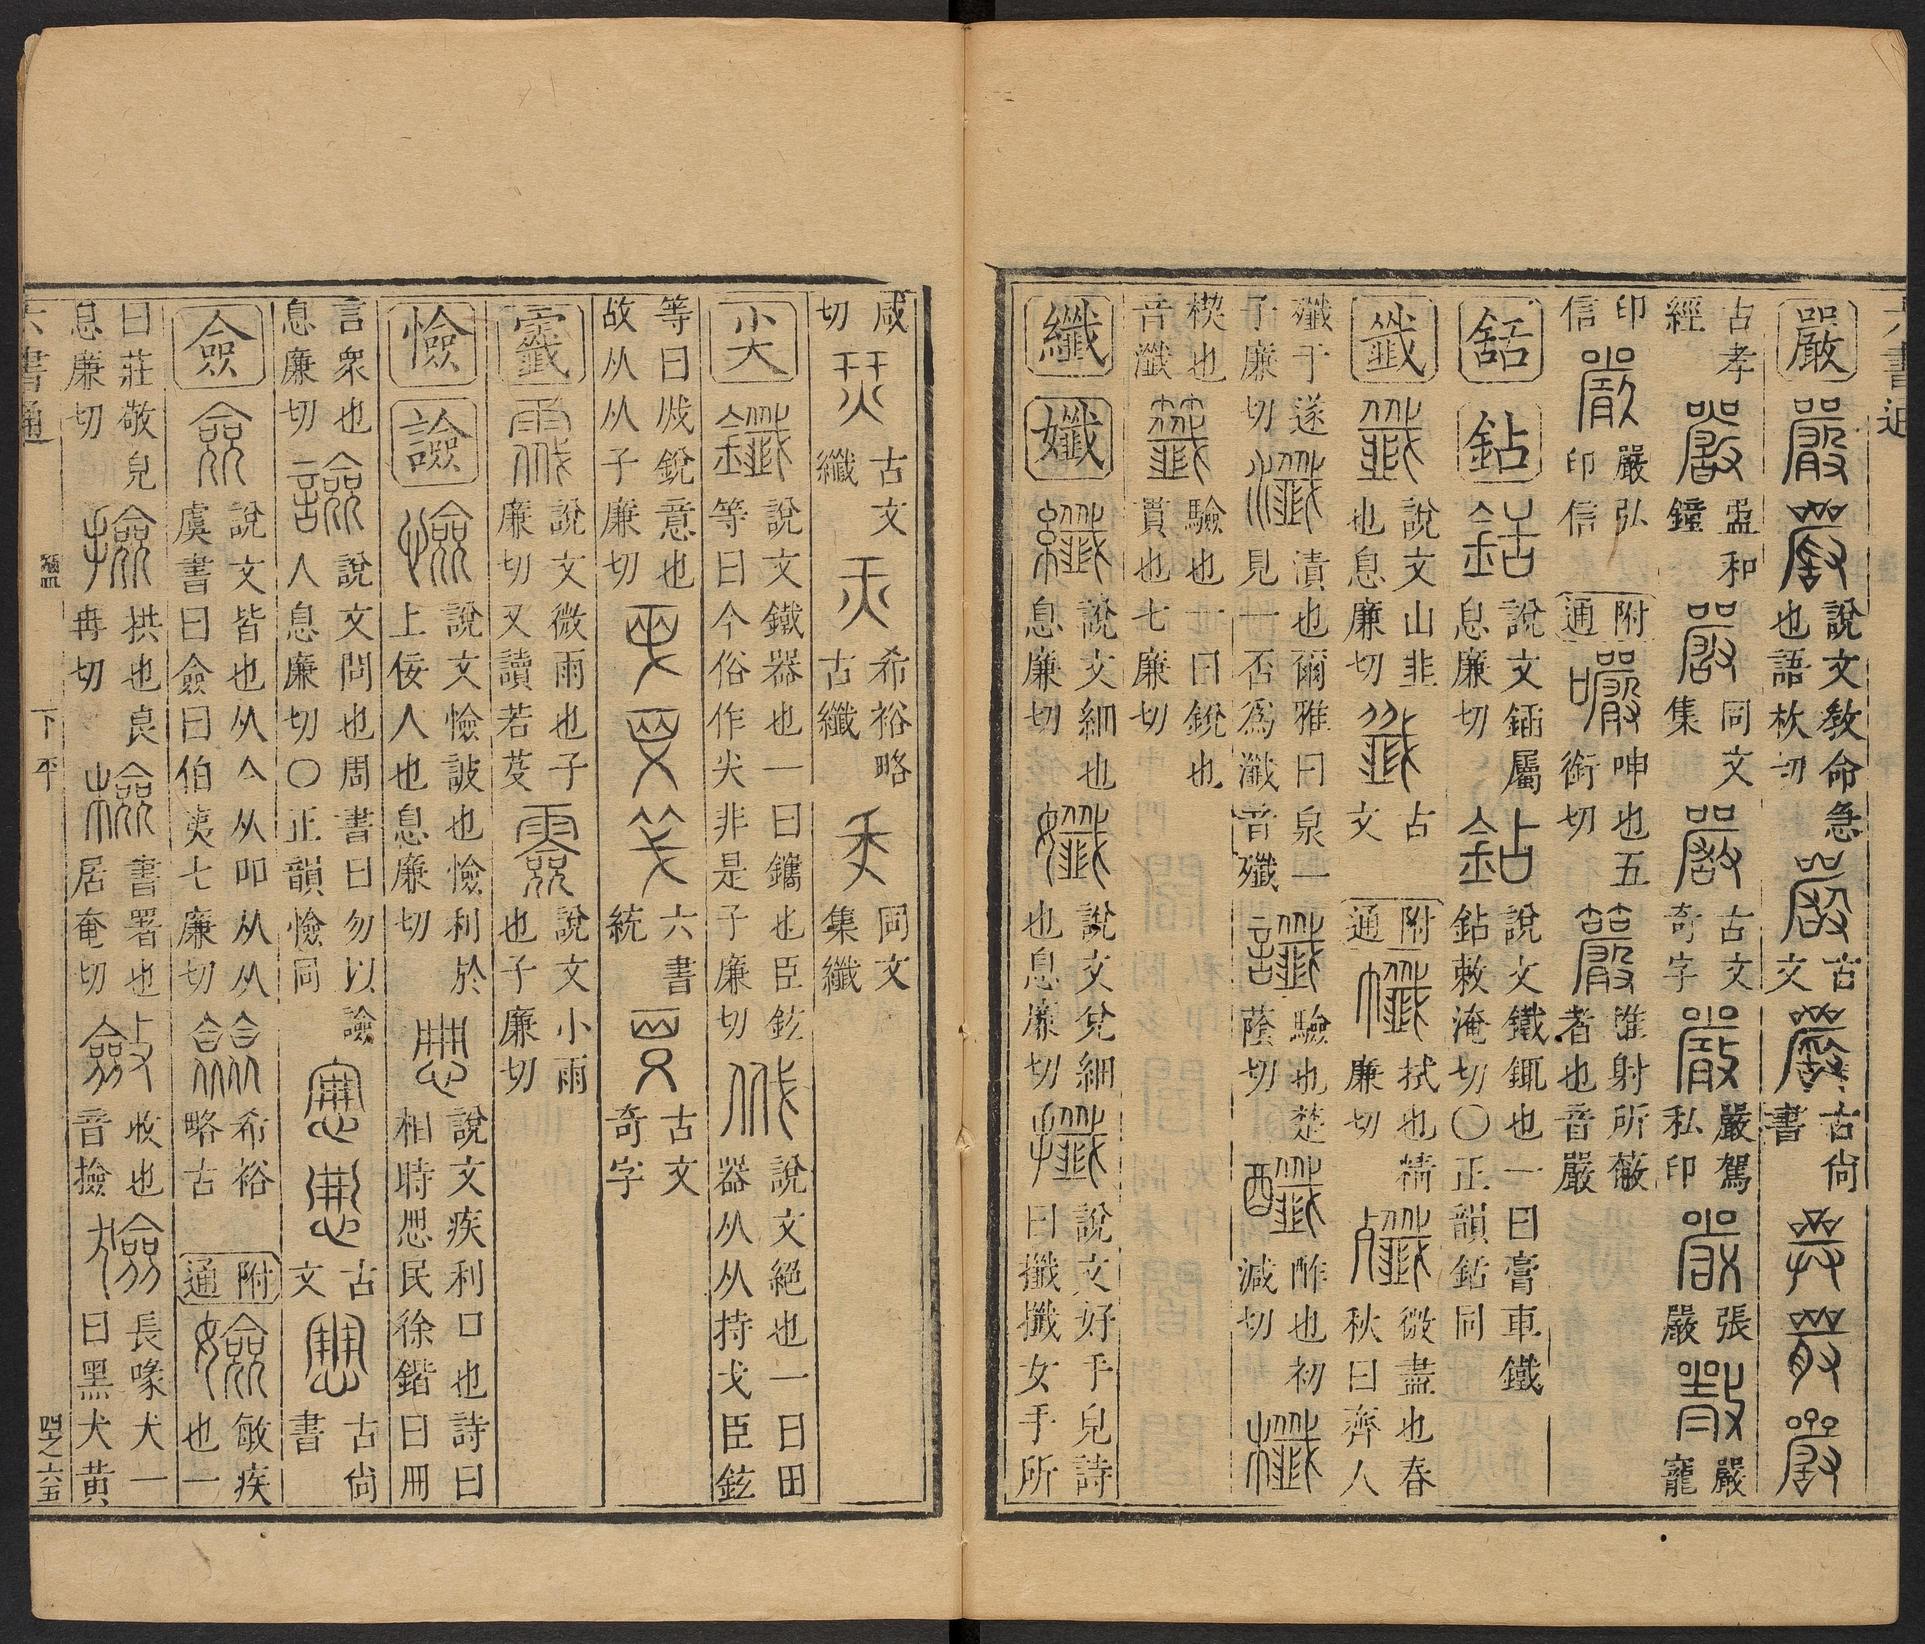 六書通
嚴 說文教命急也語枕切 古文 古尚書
古孝經 盄和鐘 同文集 古文奇字 嚴駕私印 張嚴 嚴寵
印信 嚴弘印信 附通 呻也五銜切 惟射所蔽者也音嚴
銛 鉆 說文鍤屬息廉切 說文鐵鉔也一曰膏車鐵鉆敕淹切〇正韻銛同
韱 說文山韭也息廉切 古文 附通 拭也精廉切 微盡也春秋曰齊人
殲于遂子廉切 漬也爾雅曰泉一見一否爲瀸音殲 驗也楚蔭切 酢也初減切
楔也音瀸 驗也一曰銳也貫也七廉切
纖 孅 說文細也息廉切 說文兌細也息廉切 說文好手皃詩曰攕攕女手所
咸切 古文纖 希裕略古纖 同文集纖
尖 說文鐵器也一曰鐫也臣鉉等曰今俗作尖非是子廉切 說文絕也一曰田器从从持戈臣鉉
等曰㦰銳意也故从从子廉切 六書統 古文奇字
䨘 說文微雨也子廉切又讀若芟 說文小雨也子廉切
憸 譣 說文憸詖也憸利於上佞人也息廉切 說文疾利口也詩曰相時思民徐鍇曰冊
言衆也息廉切 說文問也周書曰勿以譣人息廉切〇正韻憸同 古文 古尚書
僉 說文皆也从亼从吅从从虞書曰僉曰伯夷七廉切 希裕略古 附通 敏疾也一
曰莊敬皃息廉切 拱也良冉切 書署也居奄切 收也音撿 長喙犬一曰黑犬黃
六書通 鹽 下平 四之六五